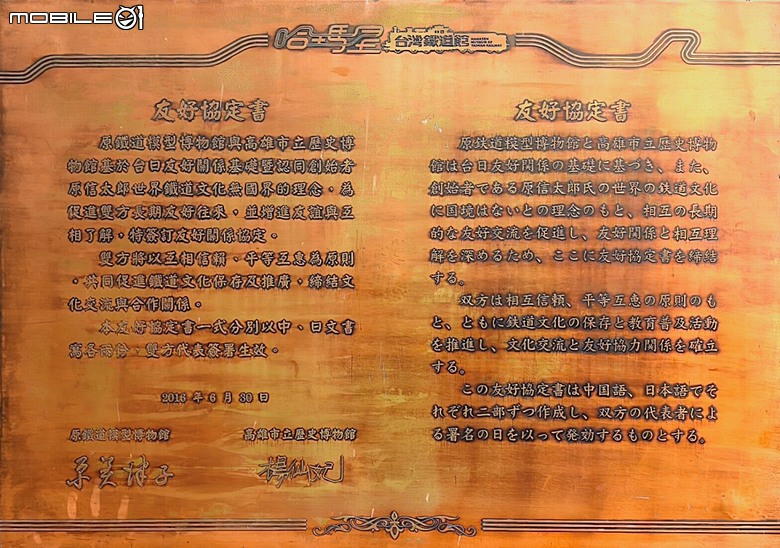 mobile01
哈瑪星
台灣鐵道館
HAMASEN
MUSEUM OF
TAIWAN RAILWAY
友好協定書
原鐵道模型博物館與高雄市立歷史博
物館基於台日友好關係基礎暨認同創始者
原信太郎世界鐵道文化無國界的理念，為
促進雙方長期友好往來，並增進友誼與互
相了解，特簽訂友好關係協定。
雙方將以互相信賴、平等互惠為原則
，共同促進鐵道文化保存及推廣，締結文
化交流與合作關係。
本友好協定書一式分別以中、日文書
寫各兩份，雙方代表簽署生效。
2016 年 6 月 30 日
原鐵道模型博物館
高雄市立歷史博物館
原美津子
楊仙妃
友好協定書
原鉄道模型博物館と高雄市立歴史博物
館は台日友好関係の基礎に基づき、また、
創始者である原信太郎氏の世界の鉄道文化
に国境はないとの理念のもと、相互の長期
的な友好交流を促進し、友好関係と相互理
解を深めるため、ここに友好協定書を締結
する。
双方は相互信頼、平等互恵の原則のも
と、ともに鉄道文化の保存と教育普及活動
を推進し、文化交流と友好協力関係を確立
する。
この友好協定書は中国語、日本語でそ
れぞれ二部ずつ作成し、双方の代表者によ
る署名の日を以って発効するものとする。